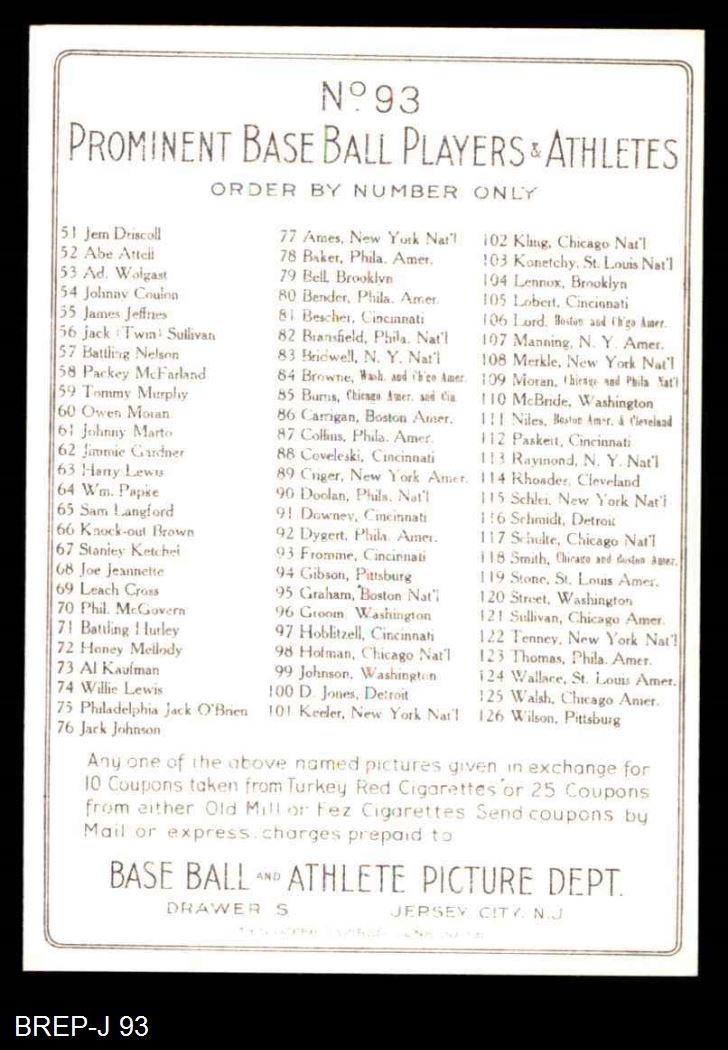 No. 93
PROMINENT BASE BALL PLAYERS & ATHLETES
ORDER BY NUMBER ONLY
51 Jem Driscoll
52 Abe Attell
53 Ad. Wolgast
54 Johnny Coulon
55 James Jeffries
56 Jack (Twin) Sullivan
57 Battling Nelson
58 Packey McFarland
59 Tommy Murphy
60 Owen Moran
61 Johnny Marto
62 Jimmie Gardner
63 Harry Lewis
64 Wm. Papke
65 Sam Langford
66 Knock-out Brown
67 Stanley Ketchel
68 Joe Jeannette
69 Leach Cross
70 Phil. McGovern
71 Battling Hurley
72 Honey Mellody
73 Al Kaufman
74 Willie Lewis
75 Philadelphia Jack O'Brien
76 Jack Johnson
77 Ames, New York Nat'l
78 Baker, Phila. Amer.
79 Bell, Brooklyn
80 Bender, Phila. Amer.
81 Bescher, Cincinnati
82 Bransfield, Phila. Nat'l
83 Bridwell, N. Y. Nat'l
84 Browne, Wash. and Ch'go Amer.
85 Burns, Chicago Amer. and Cin.
86 Carrigan, Boston Amer.
87 Collins, Phila. Amer.
88 Coveleski, Cincinnati
89 Criger, New York Amer.
90 Doolan, Phila. Nat'l
91 Downey, Cincinnati
92 Dygert, Phila. Amer.
93 Fromme, Cincinnati
94 Gibson, Pittsburg
95 Graham, Boston Nat'l
96 Groom, Washington
97 Hoblitzell, Cincinnati
98 Hofman, Chicago Nat'l
99 Johnson, Washington
100 D. Jones, Detroit
101 Keeler, New York Nat'l
102 Kling, Chicago Nat'l
103 Konetchy, St. Louis Nat'l
104 Lennox, Brooklyn
105 Lobert, Cincinnati
106 Lord, Boston and Ch'go Amer.
107 Manning, N. Y. Amer.
108 Merkle, New York Nat'l
109 Moran, Chicago and Phila. Nat'l
110 McBride, Washington
111 Niles, Boston Amer. & Cleveland
112 Paskert, Cincinnati
113 Raymond, N. Y. Nat'l
114 Rhoades, Cleveland
115 Schlei, New York Nat'l
116 Schmidt, Detroit
117 Schulte, Chicago Nat'l
118 Smith, Chicago and Boston Amer.
119 Stone, St. Louis Amer.
120 Street, Washington
121 Sullivan, Chicago Amer.
122 Tenney, New York Nat'l
123 Thomas, Phila. Amer.
124 Wallace, St. Louis Amer.
125 Walsh, Chicago Amer.
126 Wilson, Pittsburg
Any one of the above named pictures given in exchange for
10 Coupons taken from Turkey Red Cigarettes or 25 Coupons
from either Old Mill or Fez Cigarettes Send coupons by
Mail or express. charges prepaid to
BASE BALL AND ATHLETE PICTURE DEPT.
DRAWER S JERSEY CITY. N.J
BREP-J 93